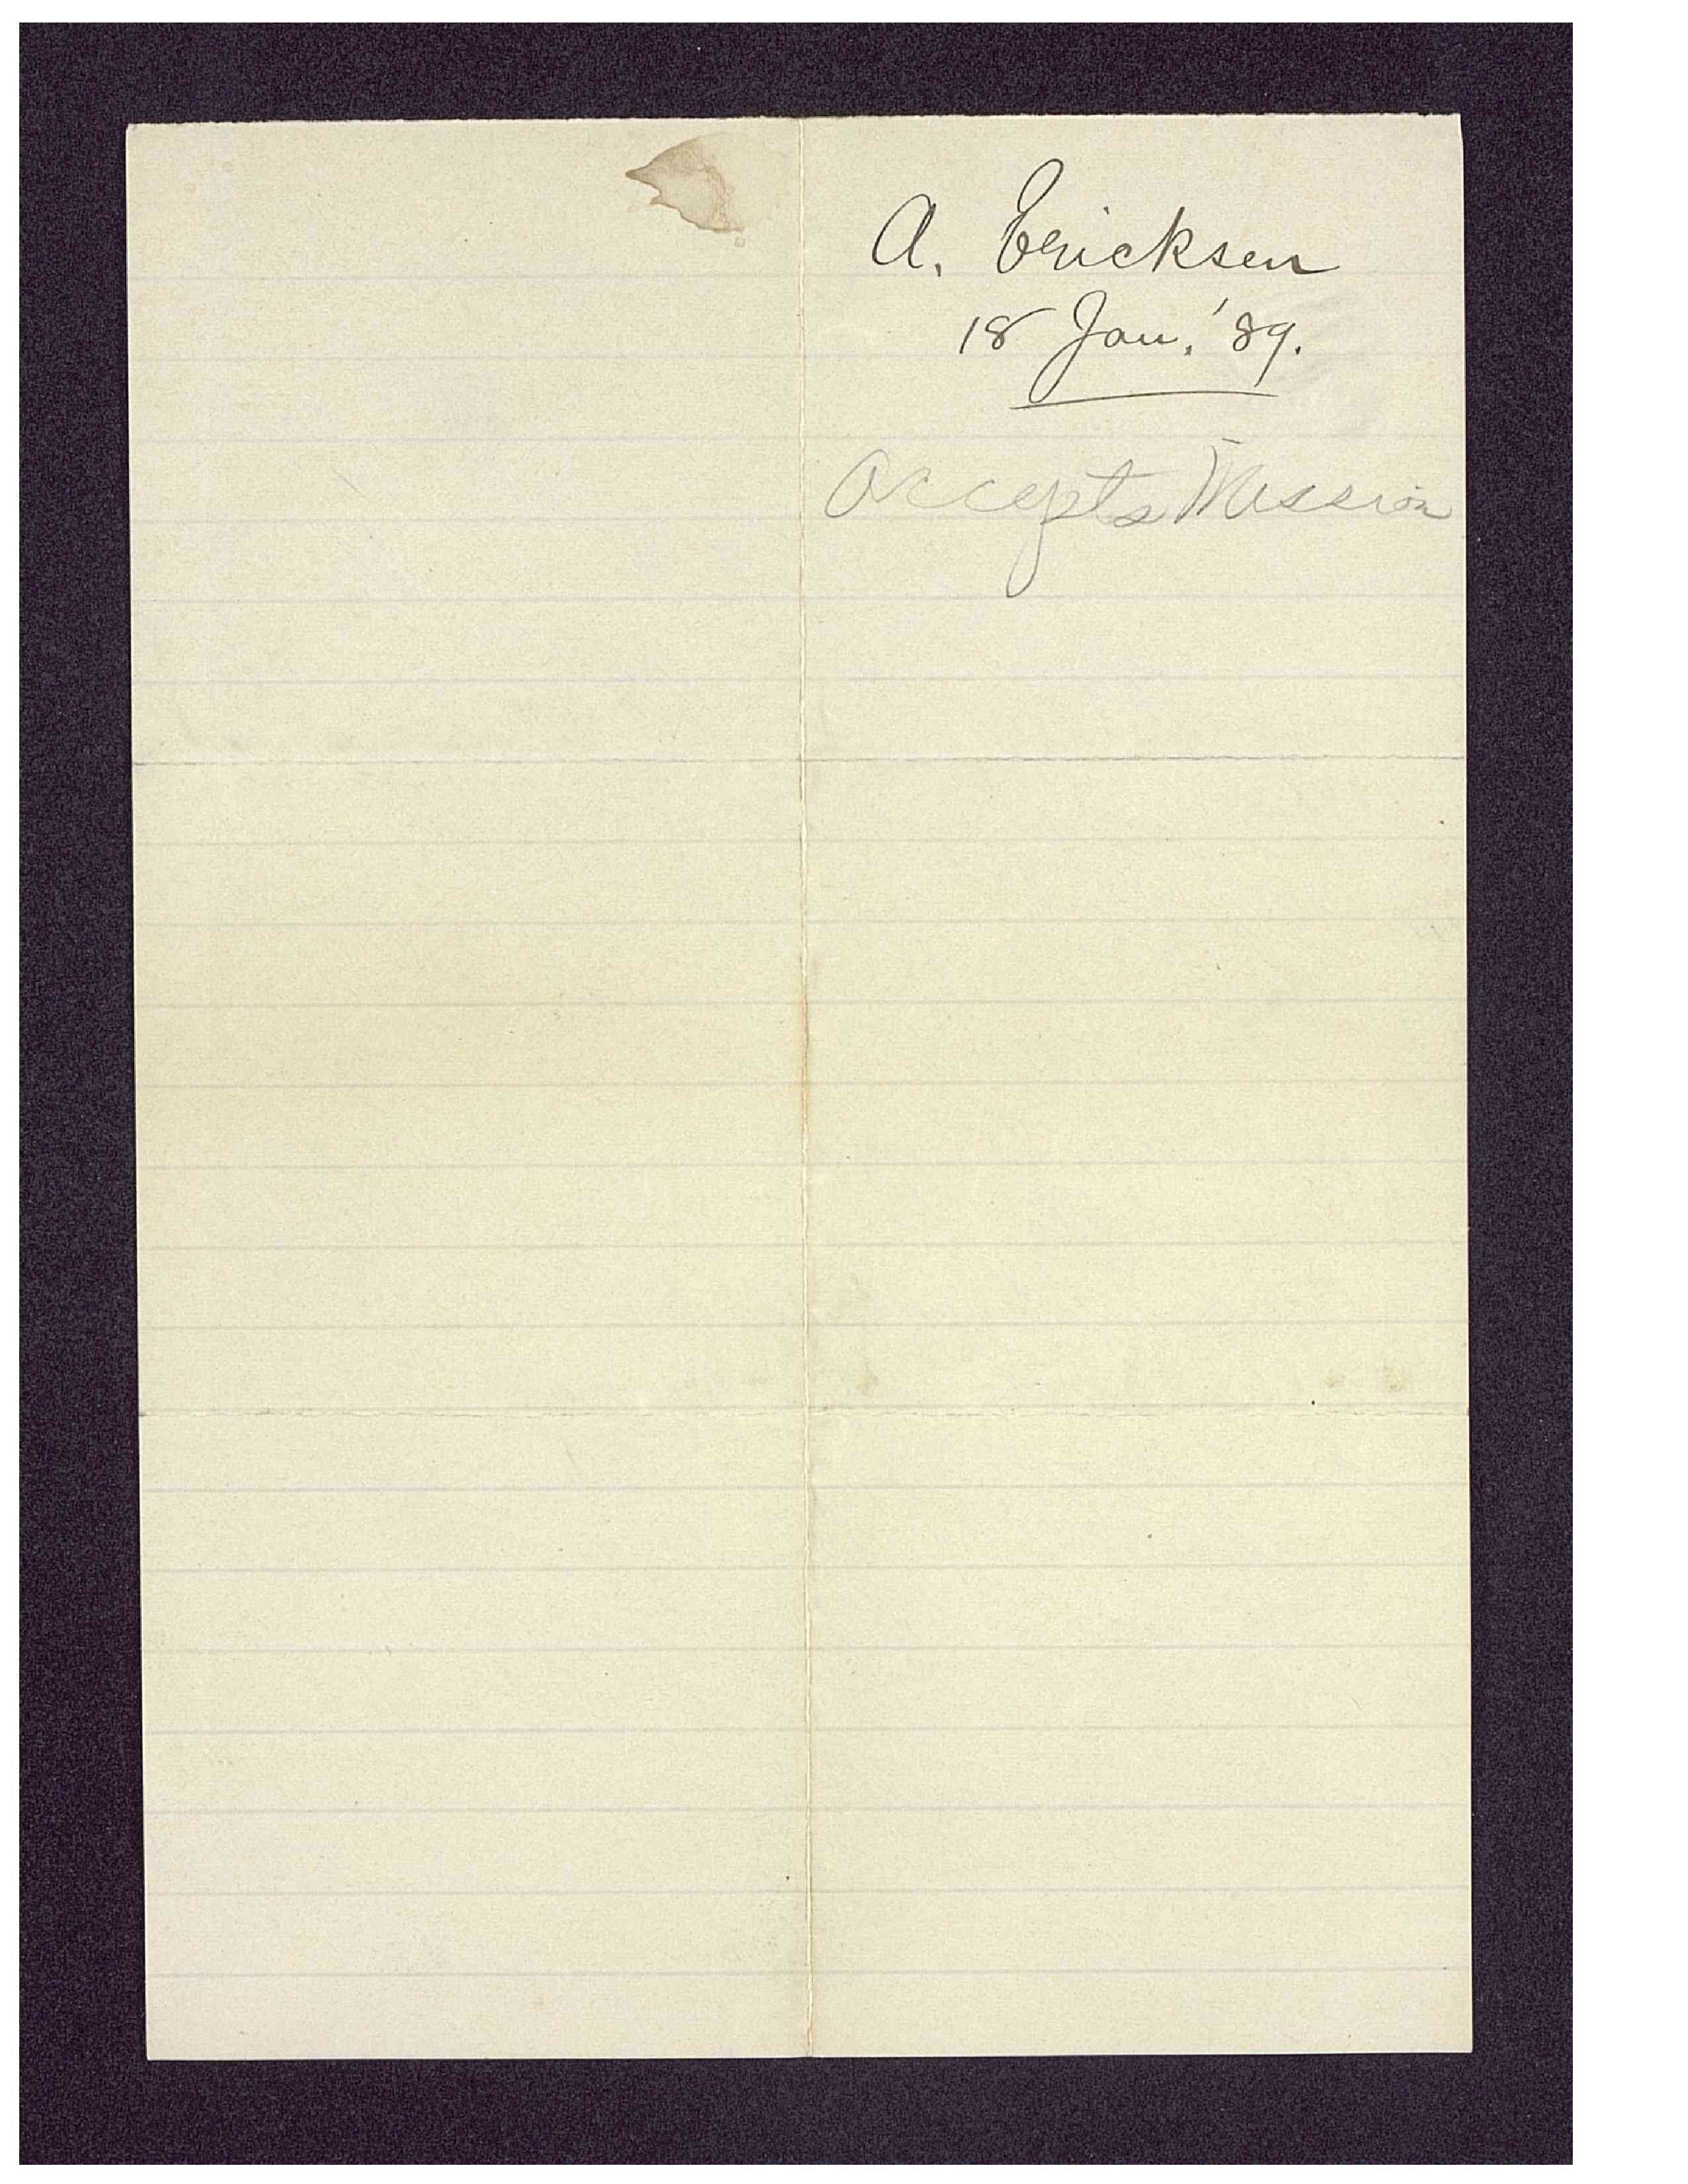 A. Ericksen
18 Jan. '89.
Accepts Mission